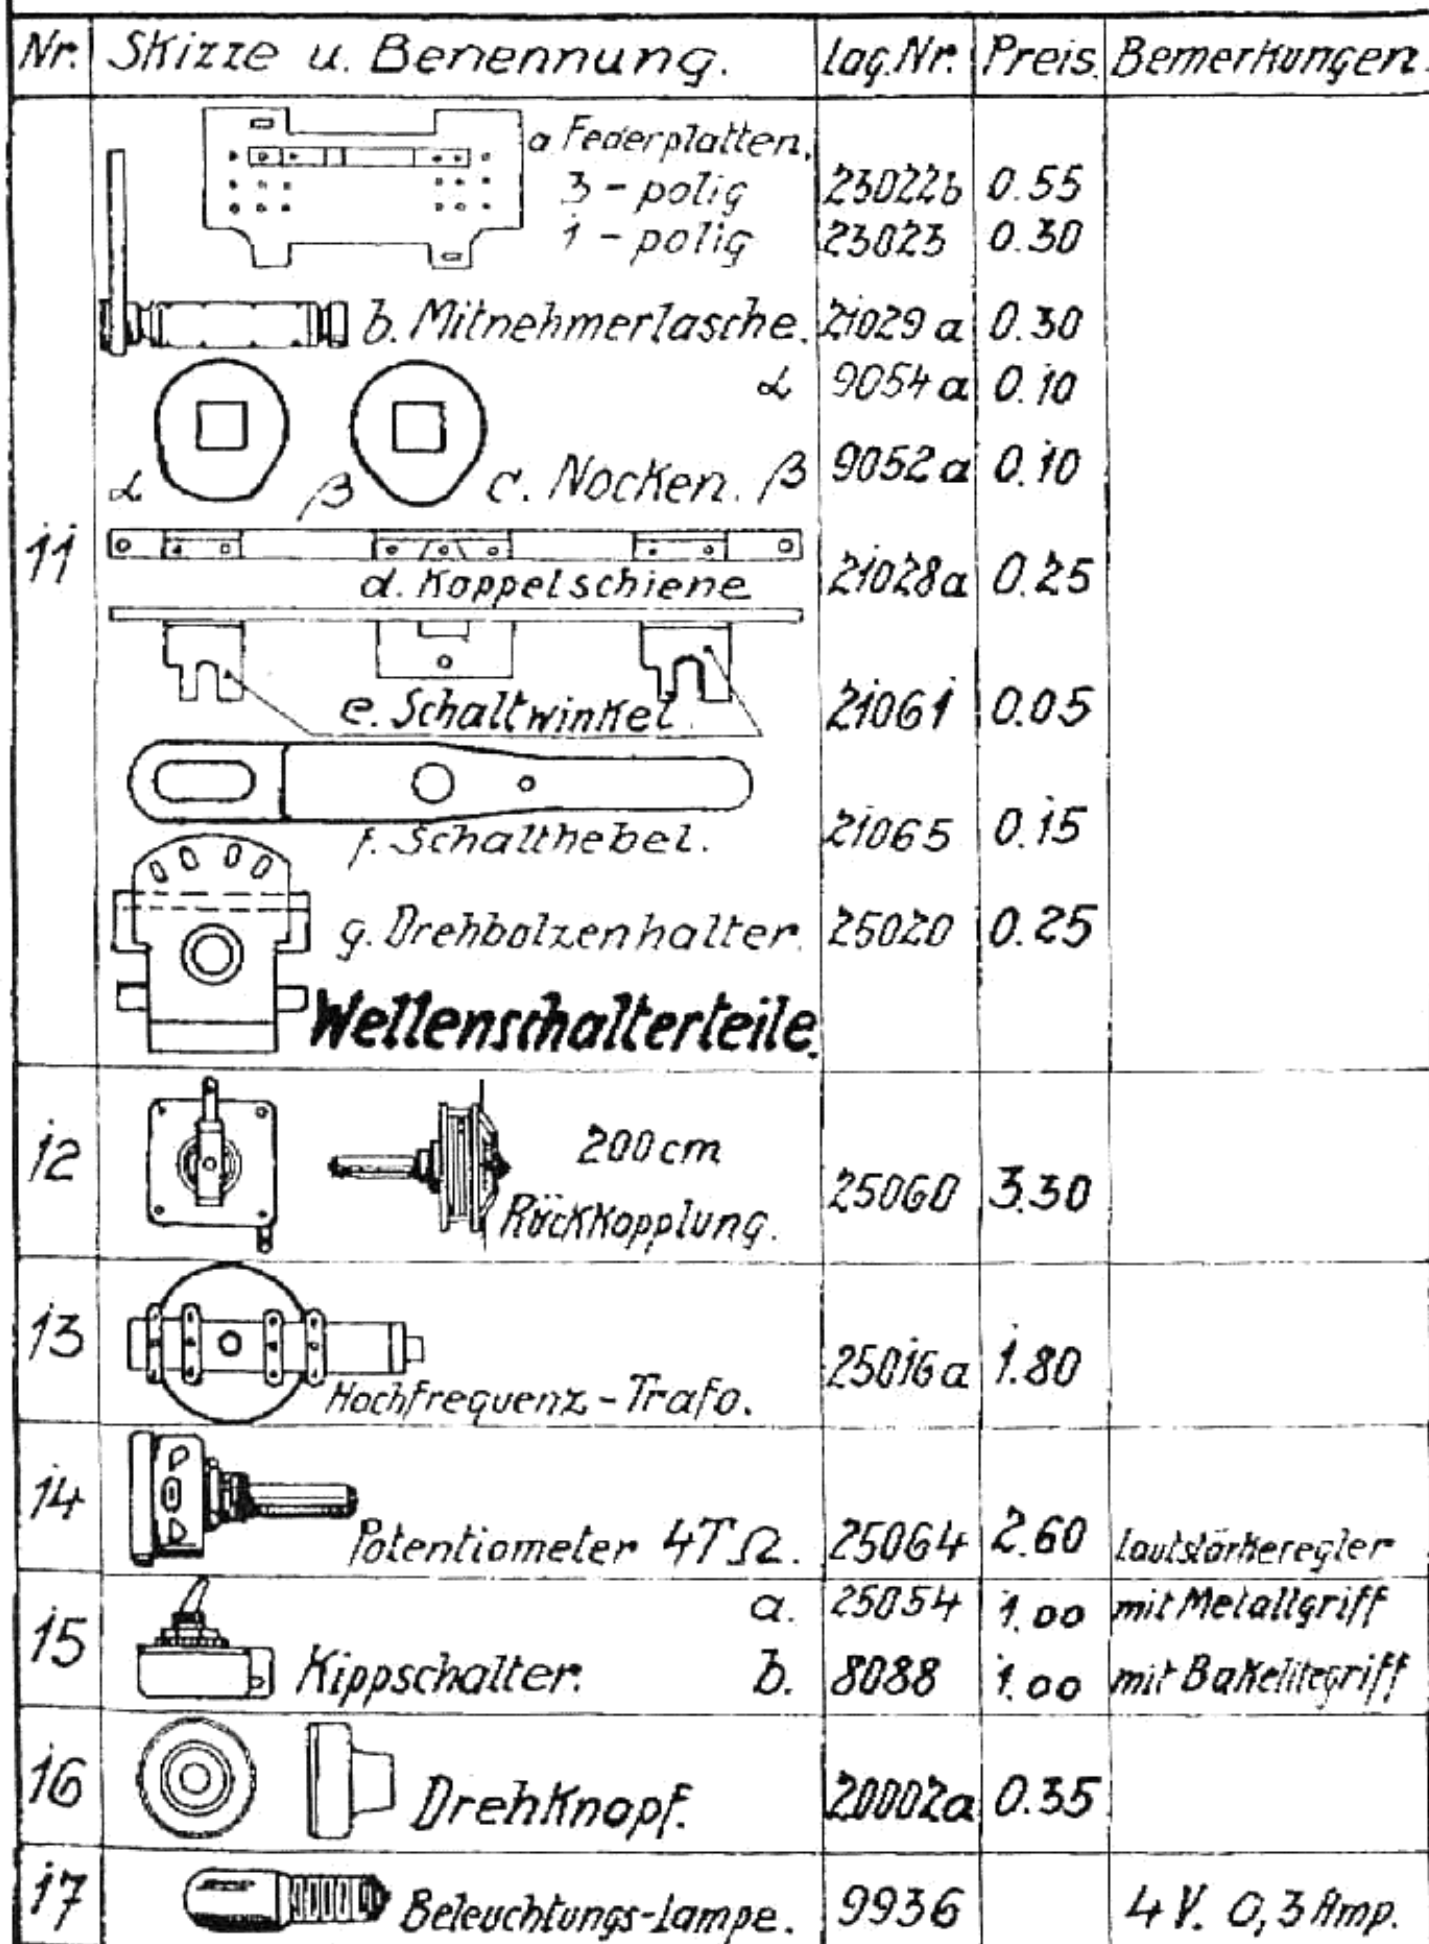 Nr. Skizze u. Benennung. Lag.Nr. Preis. Bemerkungen.
a Federplatten.
3 - polig 23022b 0.55
1 - polig 23023 0.30
b. Mitnehmerlasche. 21029a 0.30
α 9054a 0.10
α β c. Nocken. β 9052a 0.10
11
d. Koppelschiene 21028a 0.25
e. Schaltwinkel. 21061 0.05
f. Schalthebel. 21065 0.15
g. Drehbolzenhalter. 25020 0.25
Wellenschalterteile.
12 200 cm
Rückkopplung. 25060 3.30
13 Hochfrequenz-Trafo. 25016a 1.80
14 Potentiometer 4TΩ. 25064 2.60 Lautstärkeregler
a. 25054 1.00 mit Metallgriff
15 Kippschalter. b. 8088 1.00 mit Bakelitegriff
16 Drehknopf. 20002a 0.35
17 Beleuchtungs-Lampe. 9936 4 V. 0,3 Amp.